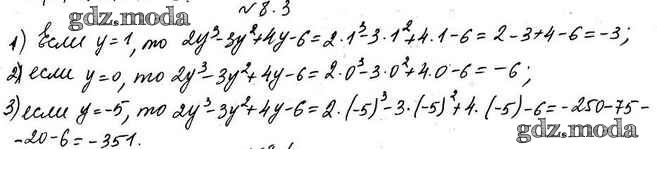 №8.3
gdz.moda
1) Если y=1, то 2y³-3y²+4y-6=2·1³-3·1²+4·1-6=2-3+4-6=-3;
2) если y=0, то 2y³-3y²+4y-6=2·0³-3·0²+4·0-6=-6;
3) если y=-5, то 2y³-3y²+4y-6=2·(-5)³-3·(-5)²+4·(-5)-6=-250-75-
-20-6=-351.
gdz.moda